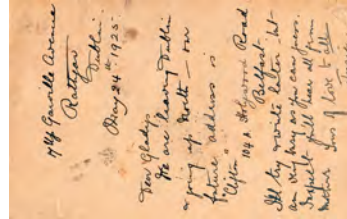 Garville Avenue
Rathgar
Dublin.
May 24th 1925
Dear Gladys
We are leaving Dublin
& going up North – our
future address is
"Clifton" 104A Holywood Road
Belfast
I'll try & write later but
am very busy as you can guess.
I expect you'll hear all from
Mother. Tons of love to all